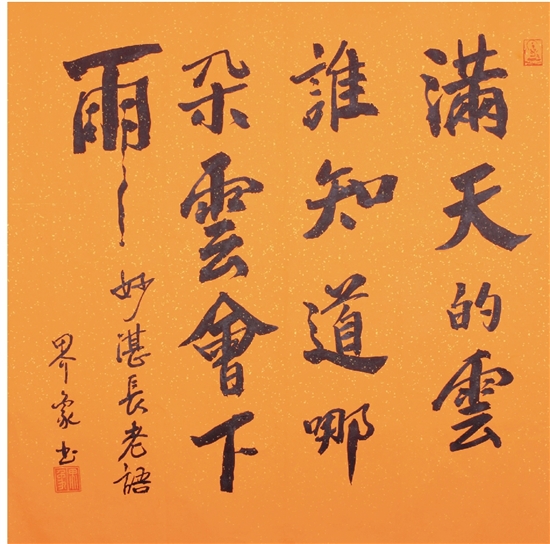 滿天的雲
誰知道哪
朵雲會下
雨
妙湛長老語
界象书